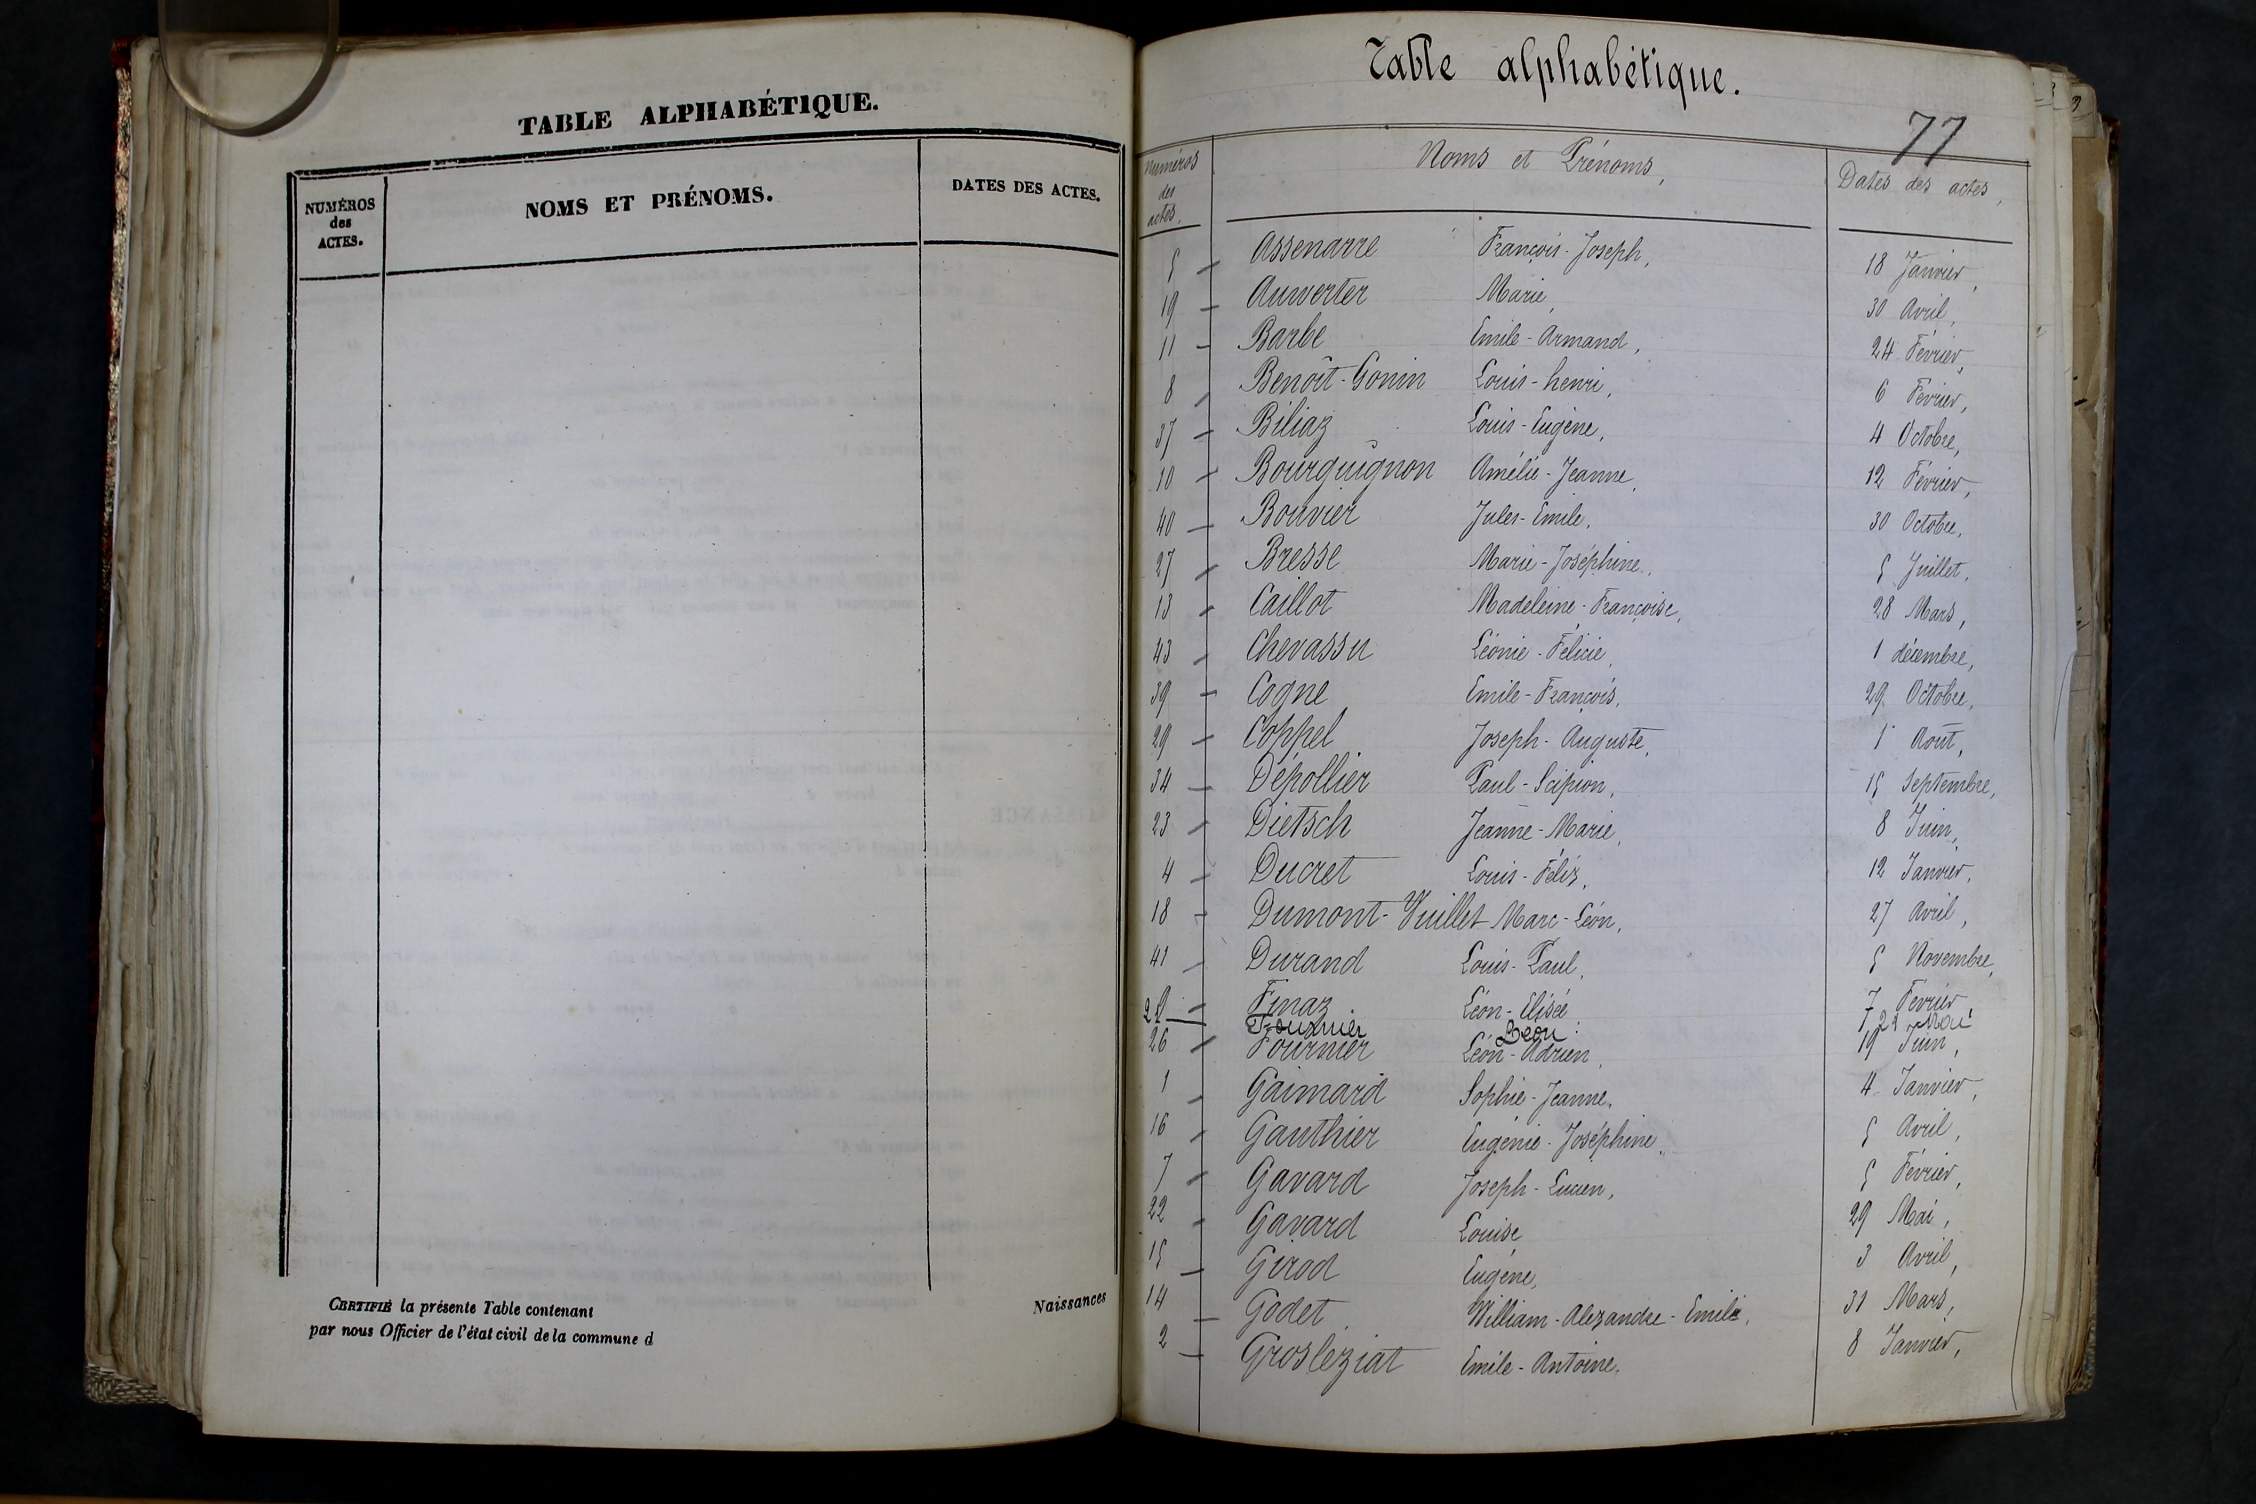 TABLE ALPHABÉTIQUE.
NUMÉROS des ACTES.
NOMS ET PRÉNOMS.
DATES DES ACTES.
CERTIFIÉ la présente Table contenant
Naissances
par nous Officier de l'état civil de la commune d
Table alphabétique.
77
Numéros des actes.
Noms et Prénoms,
Dates des actes,
5 Assenarre François-Joseph, 18 Janvier,
19 Auwerter Marie, 30 Avril,
11 Barbe Emile-Armand, 24 Février,
8 Benoît-Gonin Louis-henri, 6 Février,
37 Biliaz Louis-Eugène, 4 Octobre,
10 Bourguignon Amélie-Jeanne, 12 Février,
40 Bouvier Jules-Emile, 30 Octobre,
27 Bresse Marie-Joséphine, 5 Juillet,
13 Caillot Madeleine-Françoise, 28 Mars,
43 Chevassu Léonie-Félicie, 1 décembre,
39 Cogne Emile-François, 29 Octobre,
29 Coppel Joseph-Auguste, 1 Août,
34 Dépollier Paul-Scipion, 15 Septembre,
23 Dietsch Jeanne-Marie, 8 Juin,
4 Ducret Louis-Félix, 12 Janvier,
18 Dumont-Vuillet Marc-Léon, 27 Avril,
41 Durand Louis-Paul, 5 Novembre,
Finaz Léon-Elisée 7 Février
Fournier Léon Mai
26 Fournier Léon-Adrien, 19 Juin,
1 Gaimard Sophie-Jeanne, 4 Janvier,
16 Gauthier Eugénie-Joséphine, 5 Avril,
7 Gavard Joseph-Lucien, 5 Février,
22 Gavard Louise 29 Mai,
15 Girod Eugène, 3 Avril,
14 Godet William-Alexandre-Emile, 31 Mars,
2 Grosleziat Emile-Antoine, 8 Janvier,